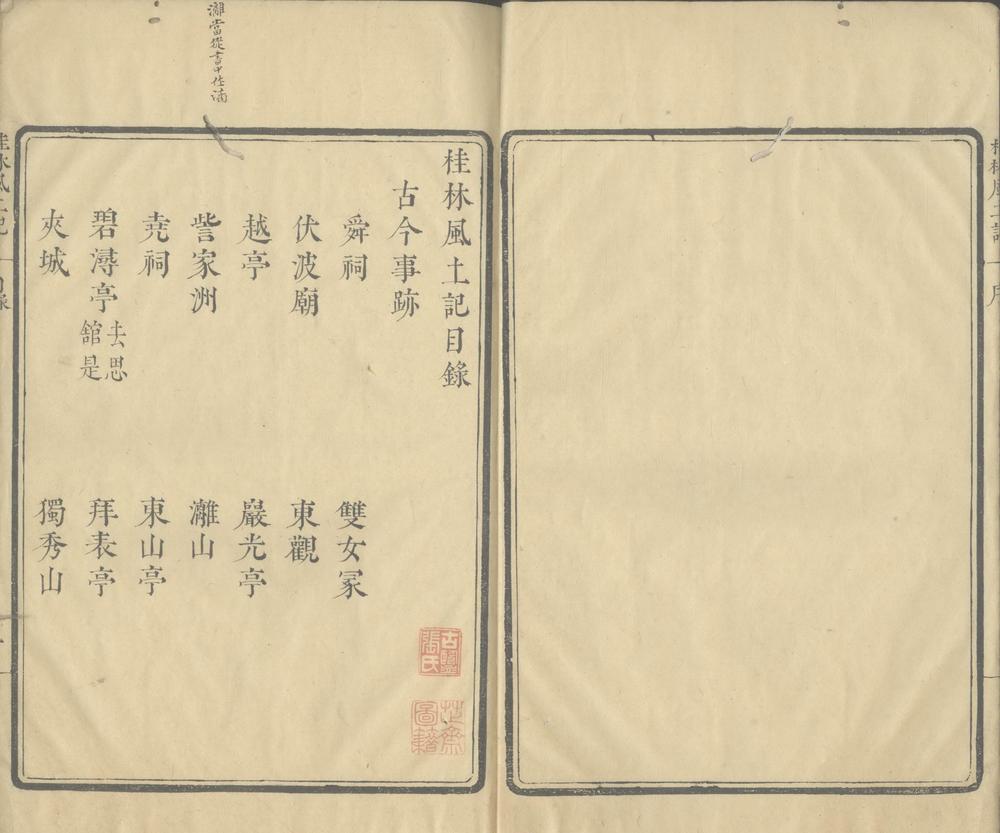 桂林風土記 序
桂林風土記目錄
古今事跡
舜祠 雙女冢
伏波廟 東觀
越亭 巖光亭
訾家洲 灕山
堯祠 東山亭
碧潯亭 去思館是 拜表亭
夾城 獨秀山
桂林風土記 目錄
灕當從書中作漓
古鹽張氏
芷齋圖籍